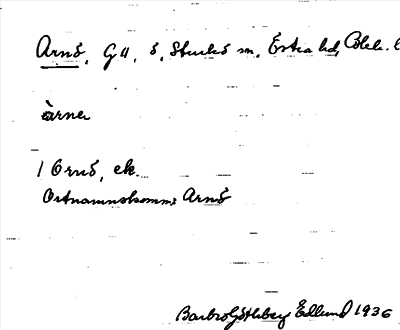 Arnö, G 11, ö, Sturkö sn, Östra hd, Blek. l
àrnə
/ Ornö, ek.
Ortnamnskomm: Arnö
Barbro Götlberg Edlund 1936